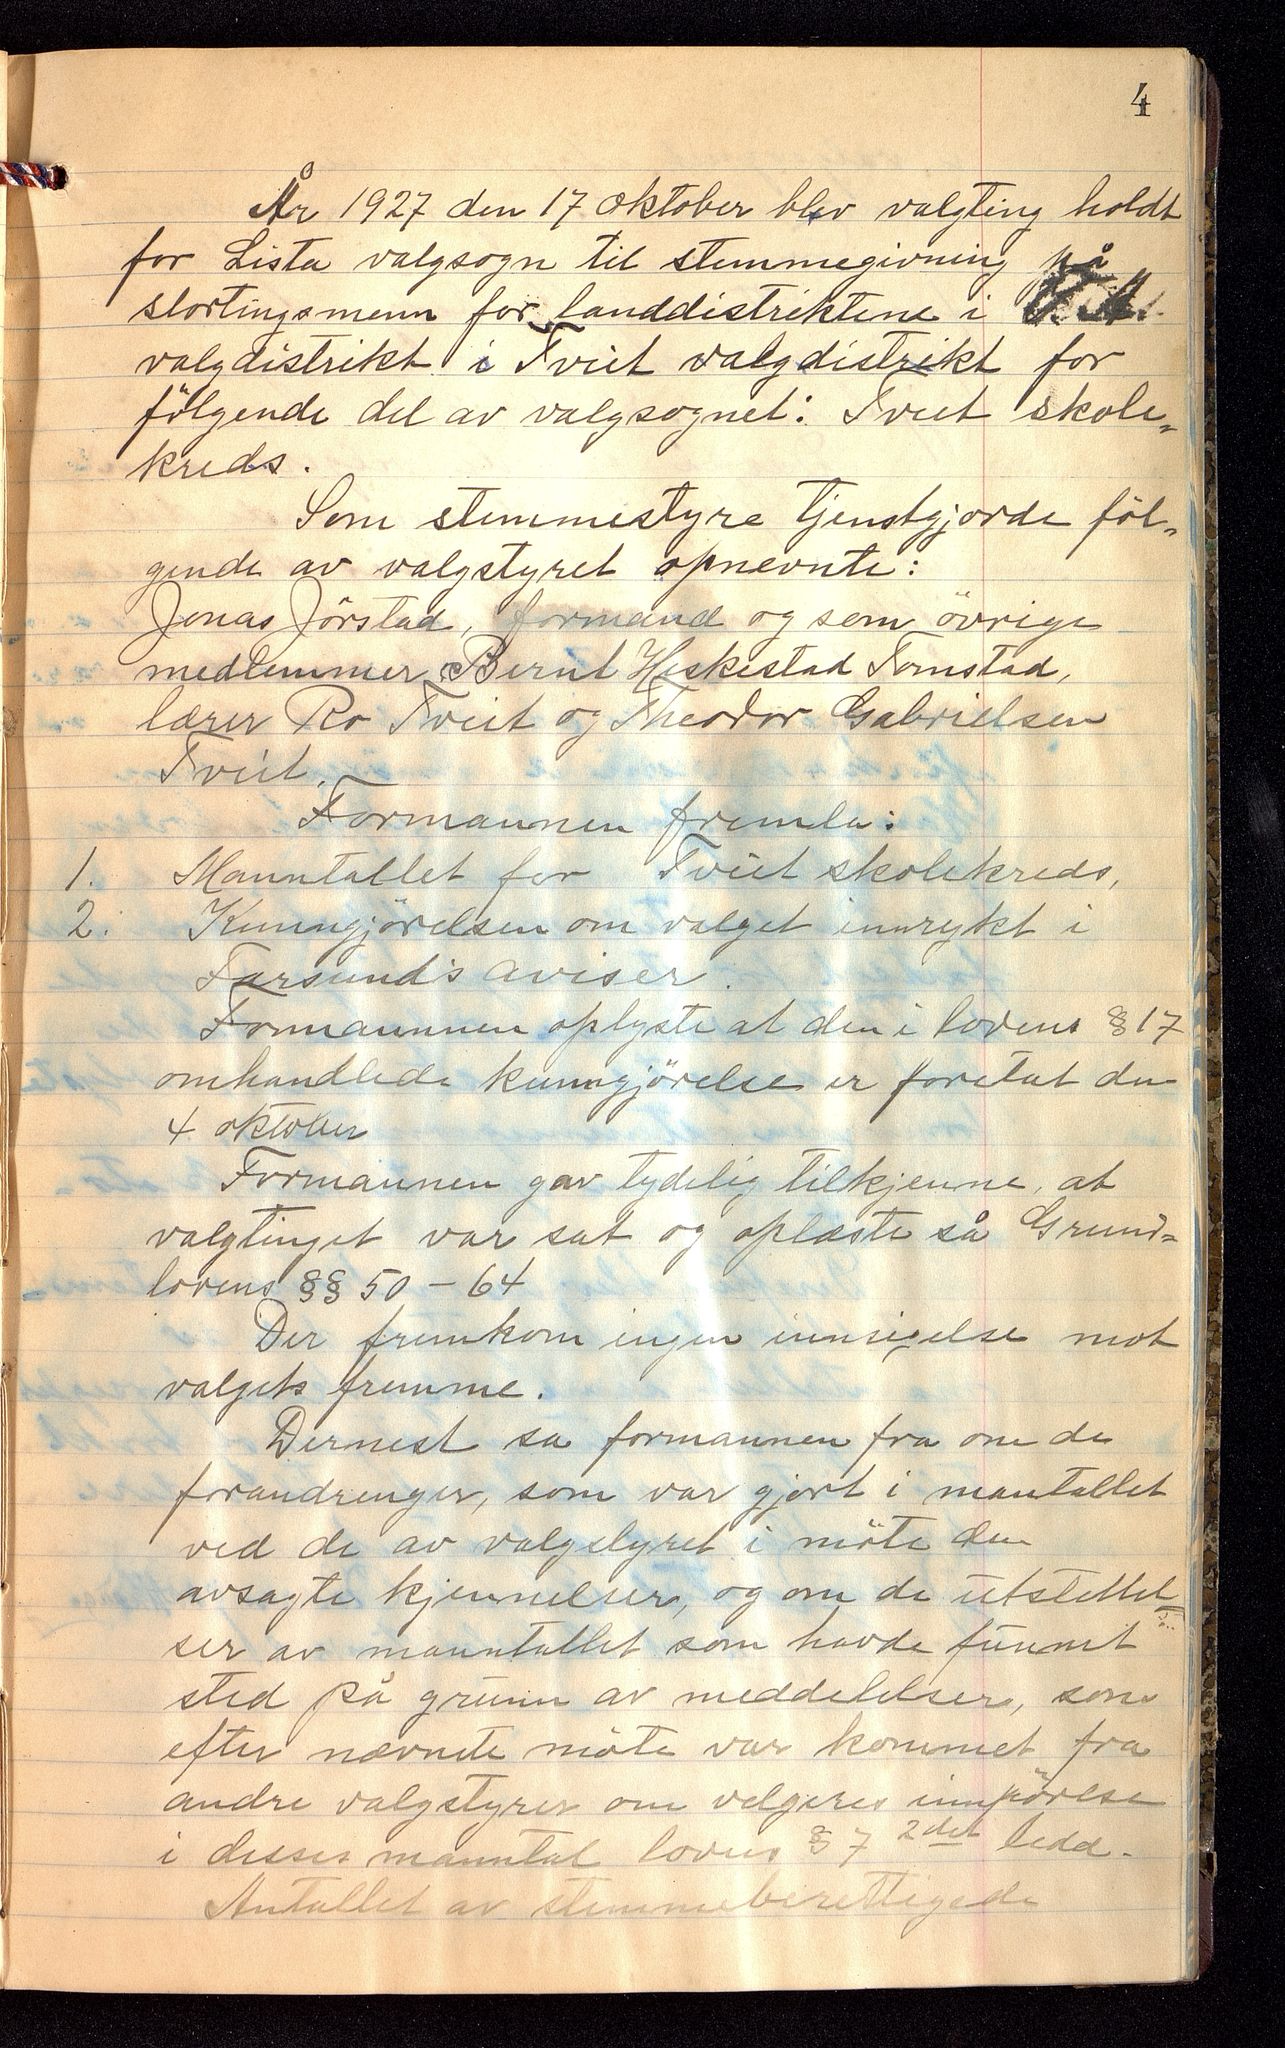 4
År 1927 den 17 oktober blev valgting holdt
for Lista valgsogn til stemmegivning på
stortingsmenn for landdistriktene i
valgdistrikt i Tveit valgdistrikt for
følgende del av valgsognet: Tveit skole-
kreds.
Som stemmestyre tjenstgjorde föl-
gende av valgstyret opnevnte:
Jonas Jörstad, formand og som övrige
medlemmer Bernt Heskestad Tomstad,
lærer Ro Tveit og Theodor Gabrielsen
Tveit.
Formannen fremla:
1. Manntallet for Tveit skolekreds,
2. Kunngjörelsen om valget innrykt i
Farsund's aviser.
Formannen oplyste at den i lovens § 17
omhandlede kunngjörelse er foretat den
4 oktober
Formannen gav tydelig tilkjenne, at
valgtinget var sat og oplæste så Grund-
lovens §§ 50 - 64
Der fremkom ingen innsigelse mot
valgets fremme.
Dernest sa formannen fra om de
forandrenger, som var gjort i mantallet
ved de av valgstyret i möte den
avsagte kjennelser, og om de utslettel-
ser av manntallet som havde funnet
sted på grunn av meddelelser, som
efter nævnte möte var kommet fra
andre valgstyrer om velgeres innförelse
i disses manntal lovens § 7 2det ledd.
Antallet av stemmeberettigede